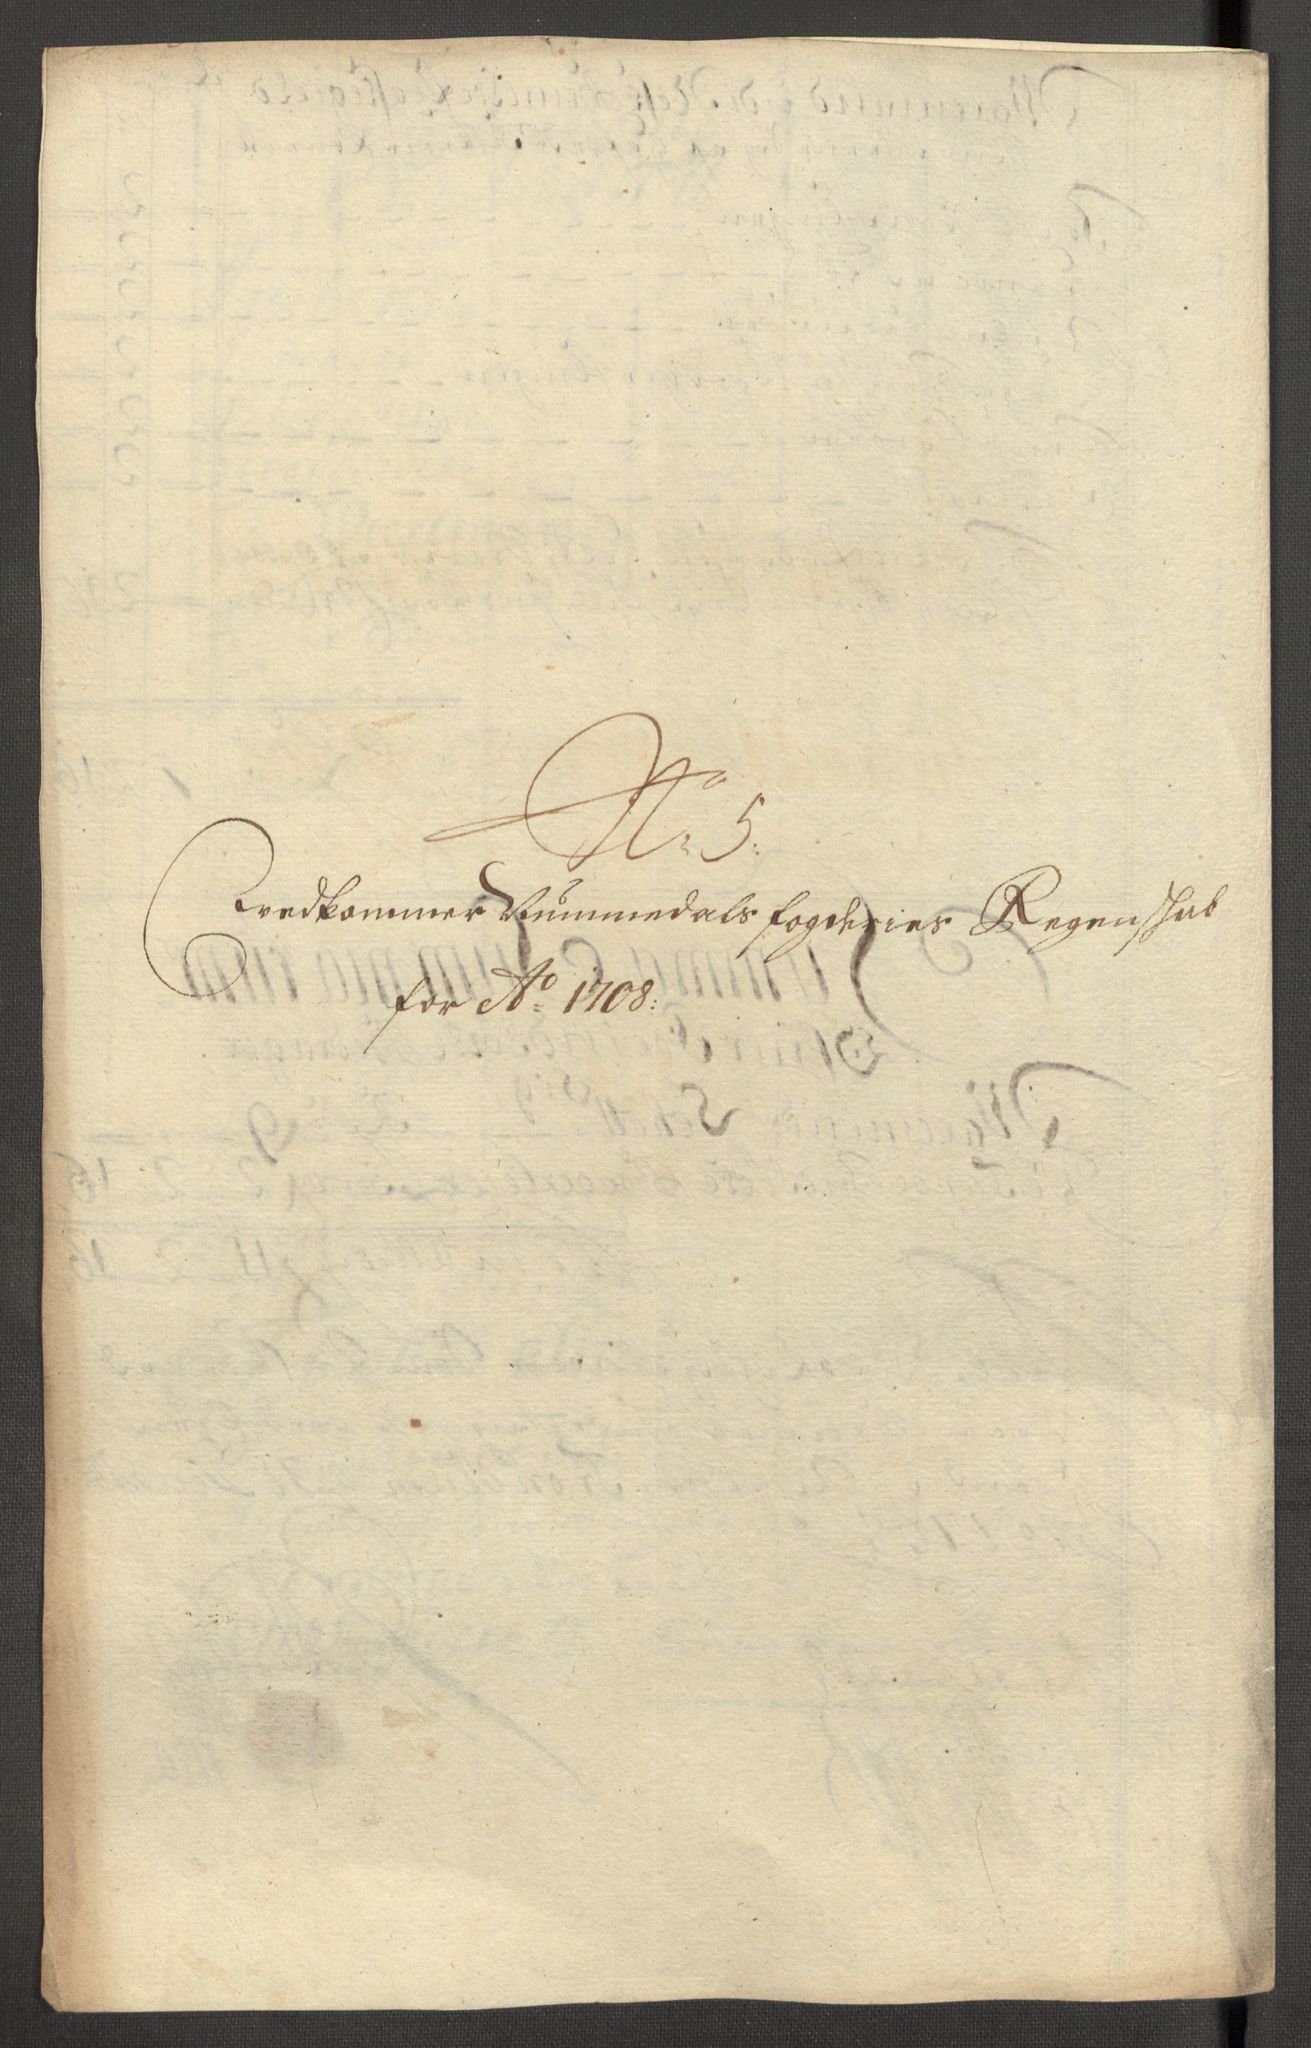 No 5:
vedkommer Nummedals fogderies Regenskab
for Ao 1708: